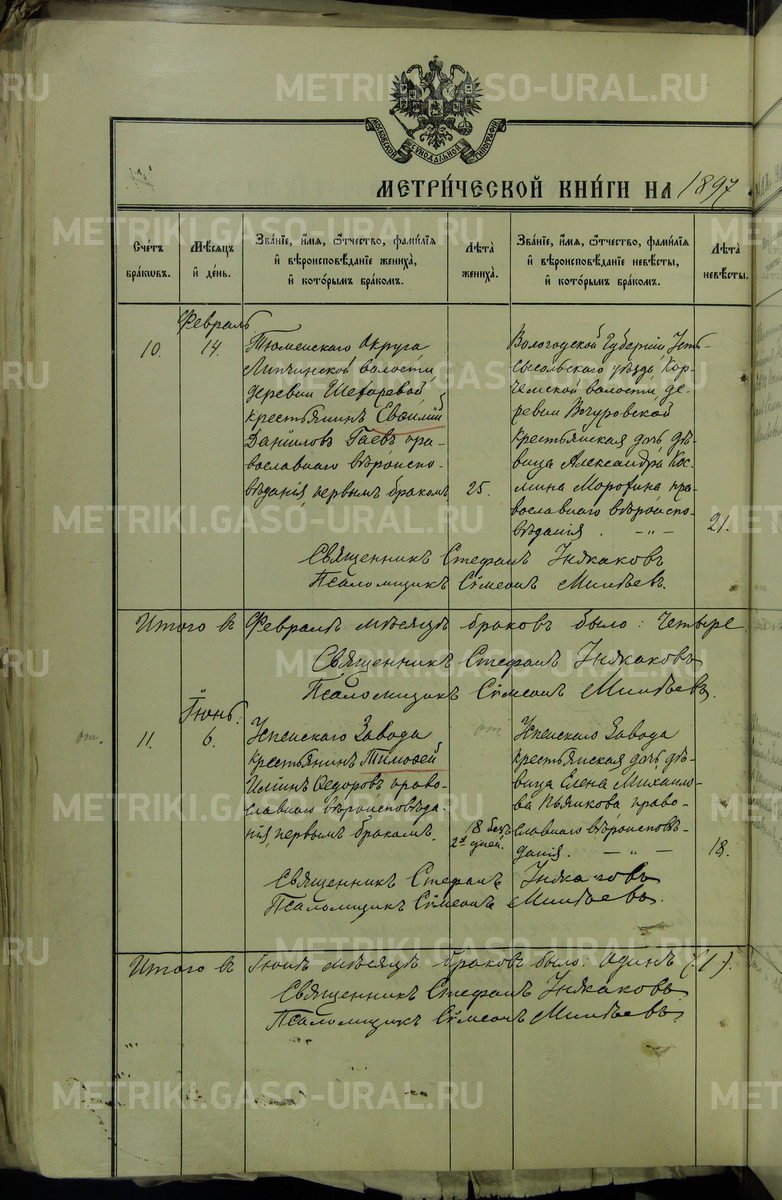 METRIKI.GASO-URAL.RU
МОСКОВСКОЙ СѴНОДАЛЬНОЙ ТИПОГРАФІИ
МЕТРИ́ЧЕСКОЙ КНИ́ГИ НА 1897
Сче́тъ бра́кѡвъ.
Мѣ́сяцъ и҆ де́нь.
Зва́нїе, и҆́мя, ѻ҆́тчество, фами́лїя и҆ вѣроисповѣ́данїе жениха̀, и҆ кото́рымъ бра́комъ.
Лѣ́та жениха̀.
Зва́нїе, и҆́мя, ѻ҆́тчество, фами́лїя и҆ вѣроисповѣ́данїе невѣ́сты, и҆ кото́рымъ бра́комъ.
Лѣ́та невѣ́сты.
Февраль
10.
14.
Тюменскаго Округа
Липчинской волости,
деревни
крестьянинъ
Даніиловъ Гаевъ пра-
вославнаго вѣроиспо-
вѣданія, первымъ бракомъ
25.
Вологодской Губерніи Усть-
сысольскаго уѣзда, Кор-
чемской волости, де-
ревни
крестьянская дочь дѣ-
вица Александра Кос-
мина Морохина пра-
вославнаго вѣроиспо-
вѣданія . —„—
21.
Священникъ Стефанъ Инжаковъ
Псаломщикъ Сѵмеонъ
Итого въ Февралѣ мѣсяцѣ браковъ было: четыре.
Священникъ Стефанъ Инжаковъ
Псаломщикъ Сѵмеонъ
Іюнь.
от.
11.
6.
Успенскаго Завода
крестьянинъ Тимоѳей
Ильинъ Ѳедоровъ, право-
славнаго вѣроисповѣда-
нія, первымъ бракомъ.
от.
18 безъ
2х дней.
Успенскаго Завода
крестьянская дочь, дѣ-
вица Елена Михаило-
ва Пьянкова право-
славнаго вѣроисповѣ-
данія. —„—
18.
Священникъ Стефанъ Инжаковъ
Псаломщикъ Сѵмеонъ
Итого въ Іюнѣ мѣсяцѣ браковъ было: одинъ (1).
Священникъ Стефанъ Инжаковъ
Псаломщикъ Сѵмеонъ